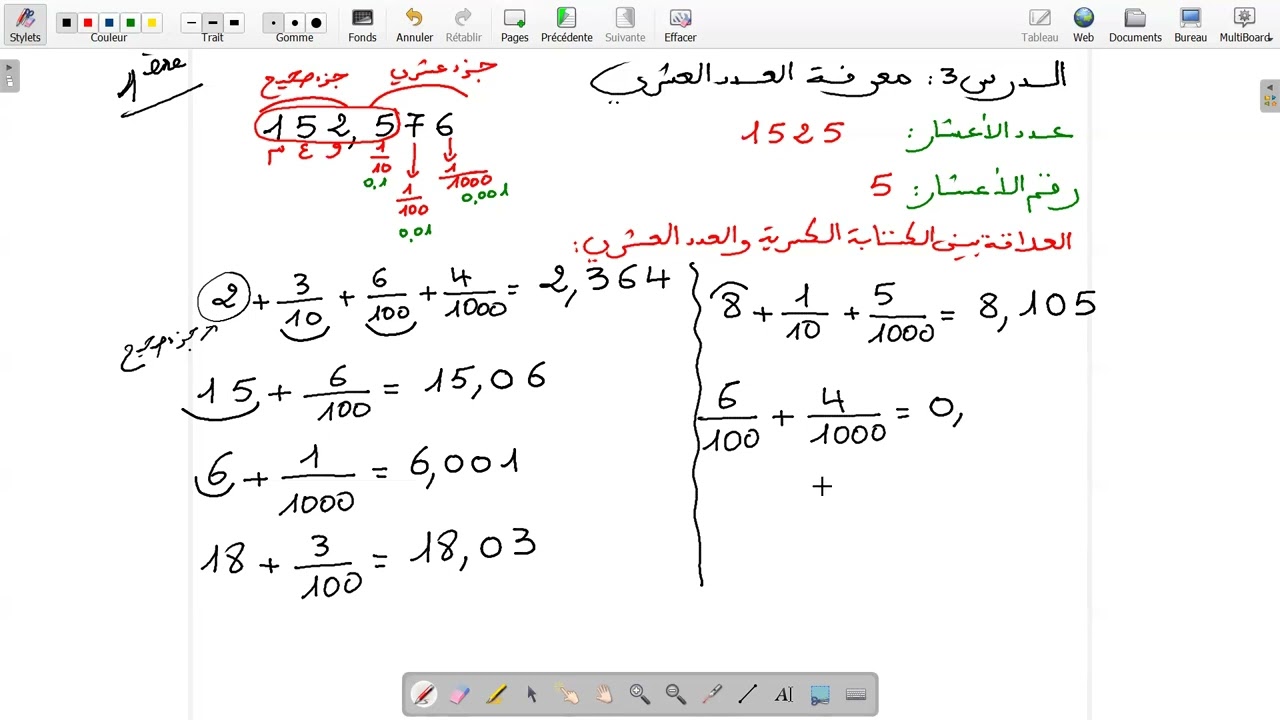 Stylets Couleur Trait Gomme Fonds Annuler Rétablir Pages Précédente Suivante Effacer Tableau Web Documents Bureau MultiBoard
1ère
الدرس 3: معرفة العدد العشري
جزء صحيح جزء عشري
152,576
م ع و 1/10 1/100 1/1000
0,1 0,01 0,001
عدد الأعشار: 1525
رقم الأعشار: 5
العلاقة بين الكتابة الكسرية والعدد العشري:
2 + 3/10 + 6/100 + 4/1000 = 2,364
جزء صحيح
15 + 6/100 = 15,06
6 + 1/1000 = 6,001
18 + 3/100 = 18,03
8 + 1/10 + 5/1000 = 8,105
6/100 + 4/1000 = 0,
AI